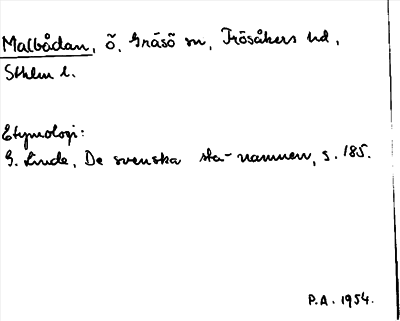 Malbådan, ö, Gräsö sn, Frösåkers hd,
Sthlm l.
Etymologi:
G. Linde, De svenska sta-namnen, s. 185.
P.A. 1954.